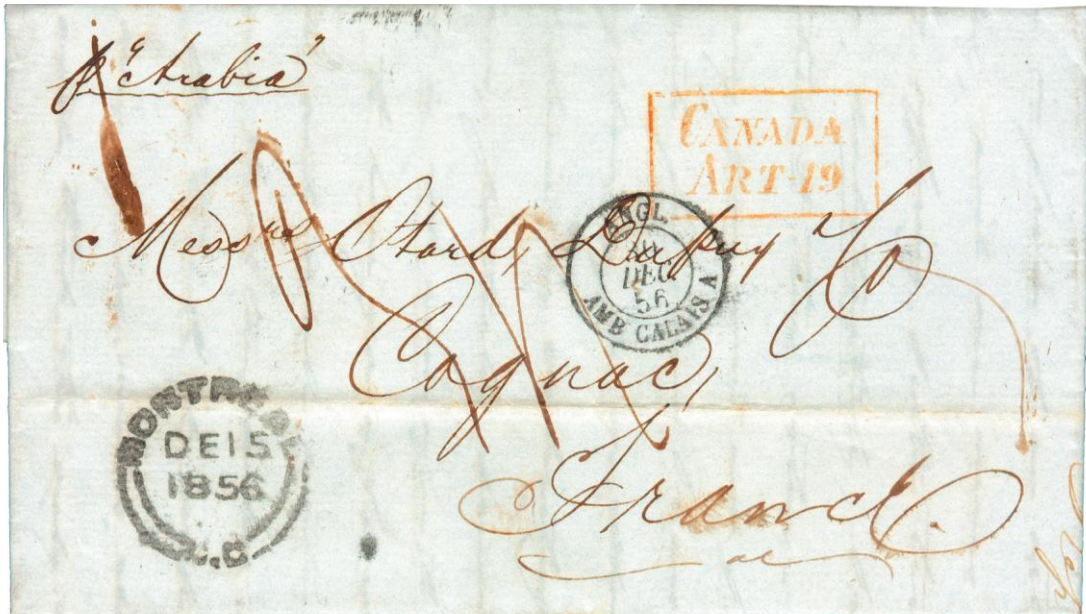 p. "Arabia"
CANADA
ART-19
Messrs Otard, Dupuy & Co
ANGL.
DEC.
56
AMB CALAIS A
Cognac,
MONTREAL
DE 15
1856
L.C
France.